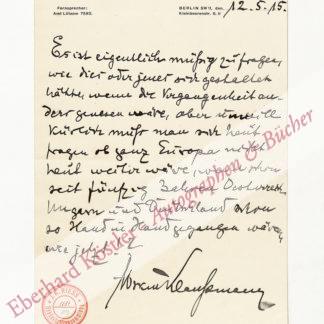 Fernsprecher:
Amt Lützow 7593.
BERLIN SW 11, den 12.5.15.
Kleinbeerenstr.
Es ist eigentlich müßig zu fragen,
wie dies oder jenes sich gestaltet
hätte, wenn die Vergangenheit an-
ders gewesen wäre, aber
muß man sich heut
fragen, ob ganz Europa nicht
heut weiter wäre, wenn schon
seit fünfzig Jahren Oesterreich
Ungarn und Deutschland schon
so Hand in Hand gegangen wären,
wie jetzt.
Eberhard Köstler Autographen & Bücher